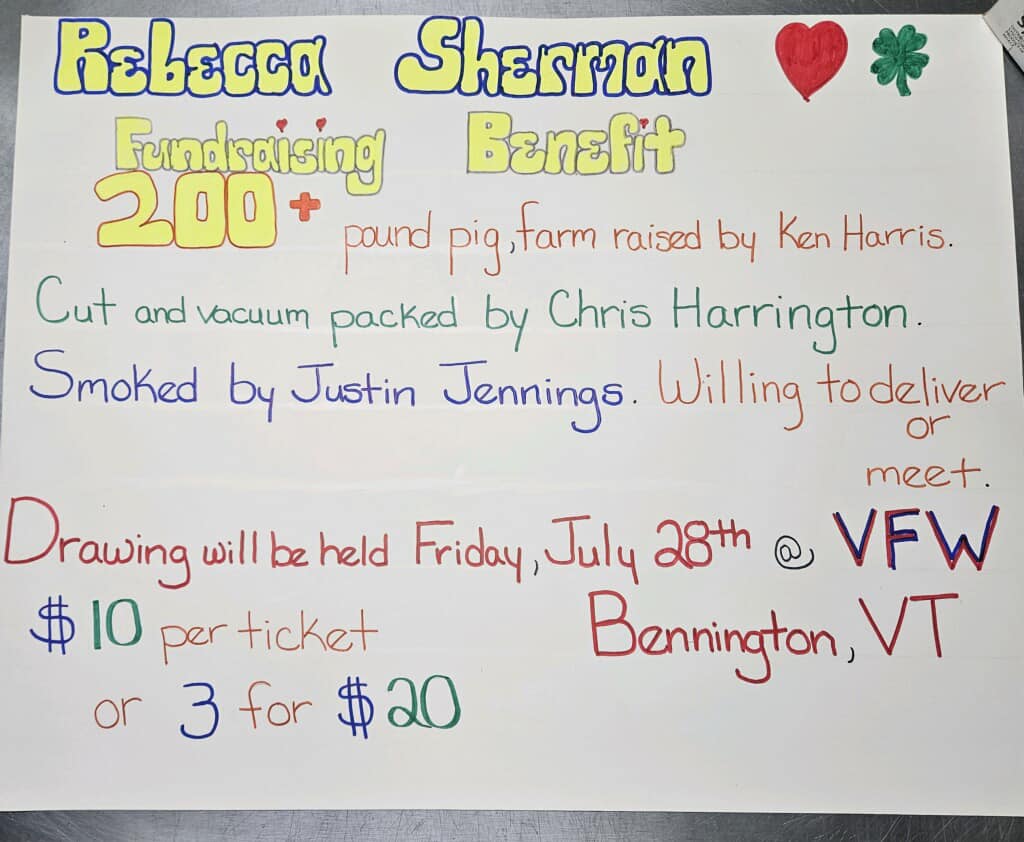 Rebecca Sherman
Fundraising Benefit
200+ pound pig, farm raised by Ken Harris.
Cut and vacuum packed by Chris Harrington.
Smoked by Justin Jennings. Willing to deliver
or
meet.
Drawing will be held Friday, July 28th @ VFW
$10 per ticket Bennington, VT
or 3 for $20